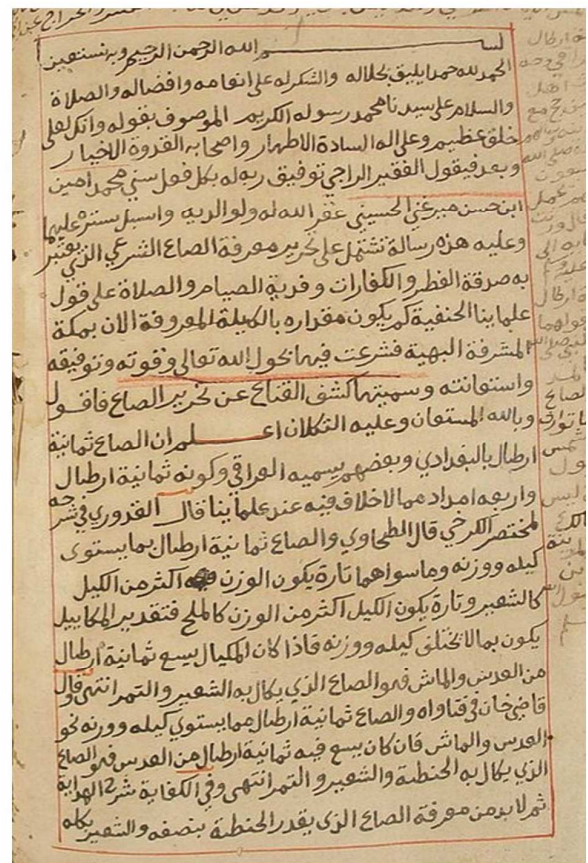 بسم الله الرحمن الرحيم وبه نستعين
الحمد لله حمدا يليق بجلاله والشكر له على انعامه وافضاله والصلاة
والسلام على سيدنا محمد رسوله الكريم الموصوف بقوله وانك لعلى
خلق عظيم وعلى اله السادة الاطهار واصحابه القدوة الاخيار
وبعد فيقول الفقير الراجي توفيق ربه له بكل فعل سني محمد امين
ابن حسن ميرغني الحسيني غفر الله له ولوالديه واسبل ستره عليهما
وعليه هذه رسالة تشتمل على تحرير معرفة الصاع الشرعي الذي يعتبر
به صدقة الفطر والكفارات وفدية الصيام والصلاة على قول
علماينا الحنفية كم يكون مقداره بالكيلة المعروفة الان بمكة
المشرفة البهية فشرعت فيها بحول الله تعالى وقوته وتوفيقه
واستعانته وسميتها كشف القناع عن تحرير الصاع فاقول
وبالله المستعان وعليه التكلان اعلم ان الصاع ثمانية
ارطال بالبغدادي وبعضهم يسميه العراقي وكونه ثمانية ارطال
واربعه امداد مما لاخلاف فيه عند علماينا قال القدوري في شرحه
لمختصر الكرخي قال الطحاوي والصاع ثمانية ارطال بما يستوي
كيله ووزنه وما سواهما تارة يكون الوزن فيه اكثر من الكيل
كالشعير وتارة يكون الكيل اكثر من الوزن كالملح فتقدير المكاييل
يكون بما لا يختلف كيله ووزنه فاذا كان المكيال يسع ثمانية ارطال
من العدس والماش فهو الصاع الذي يكال به الشعير والتمر انتهى وقال
قاضي خان في فتاواه والصاع ثمانية ارطال مما يستوي كيله ووزنه نحو
العدس والماش فان كان يسع فيه ثمانية ارطال من العدس فهو الصاع
الذي يكال به الحنطة والشعير والتمر انتهى وفي الكفاية شرح الهداية
ثم لا بد من معرفة الصاع الذي يقدر الحنطة بنصفه والشعير بكله